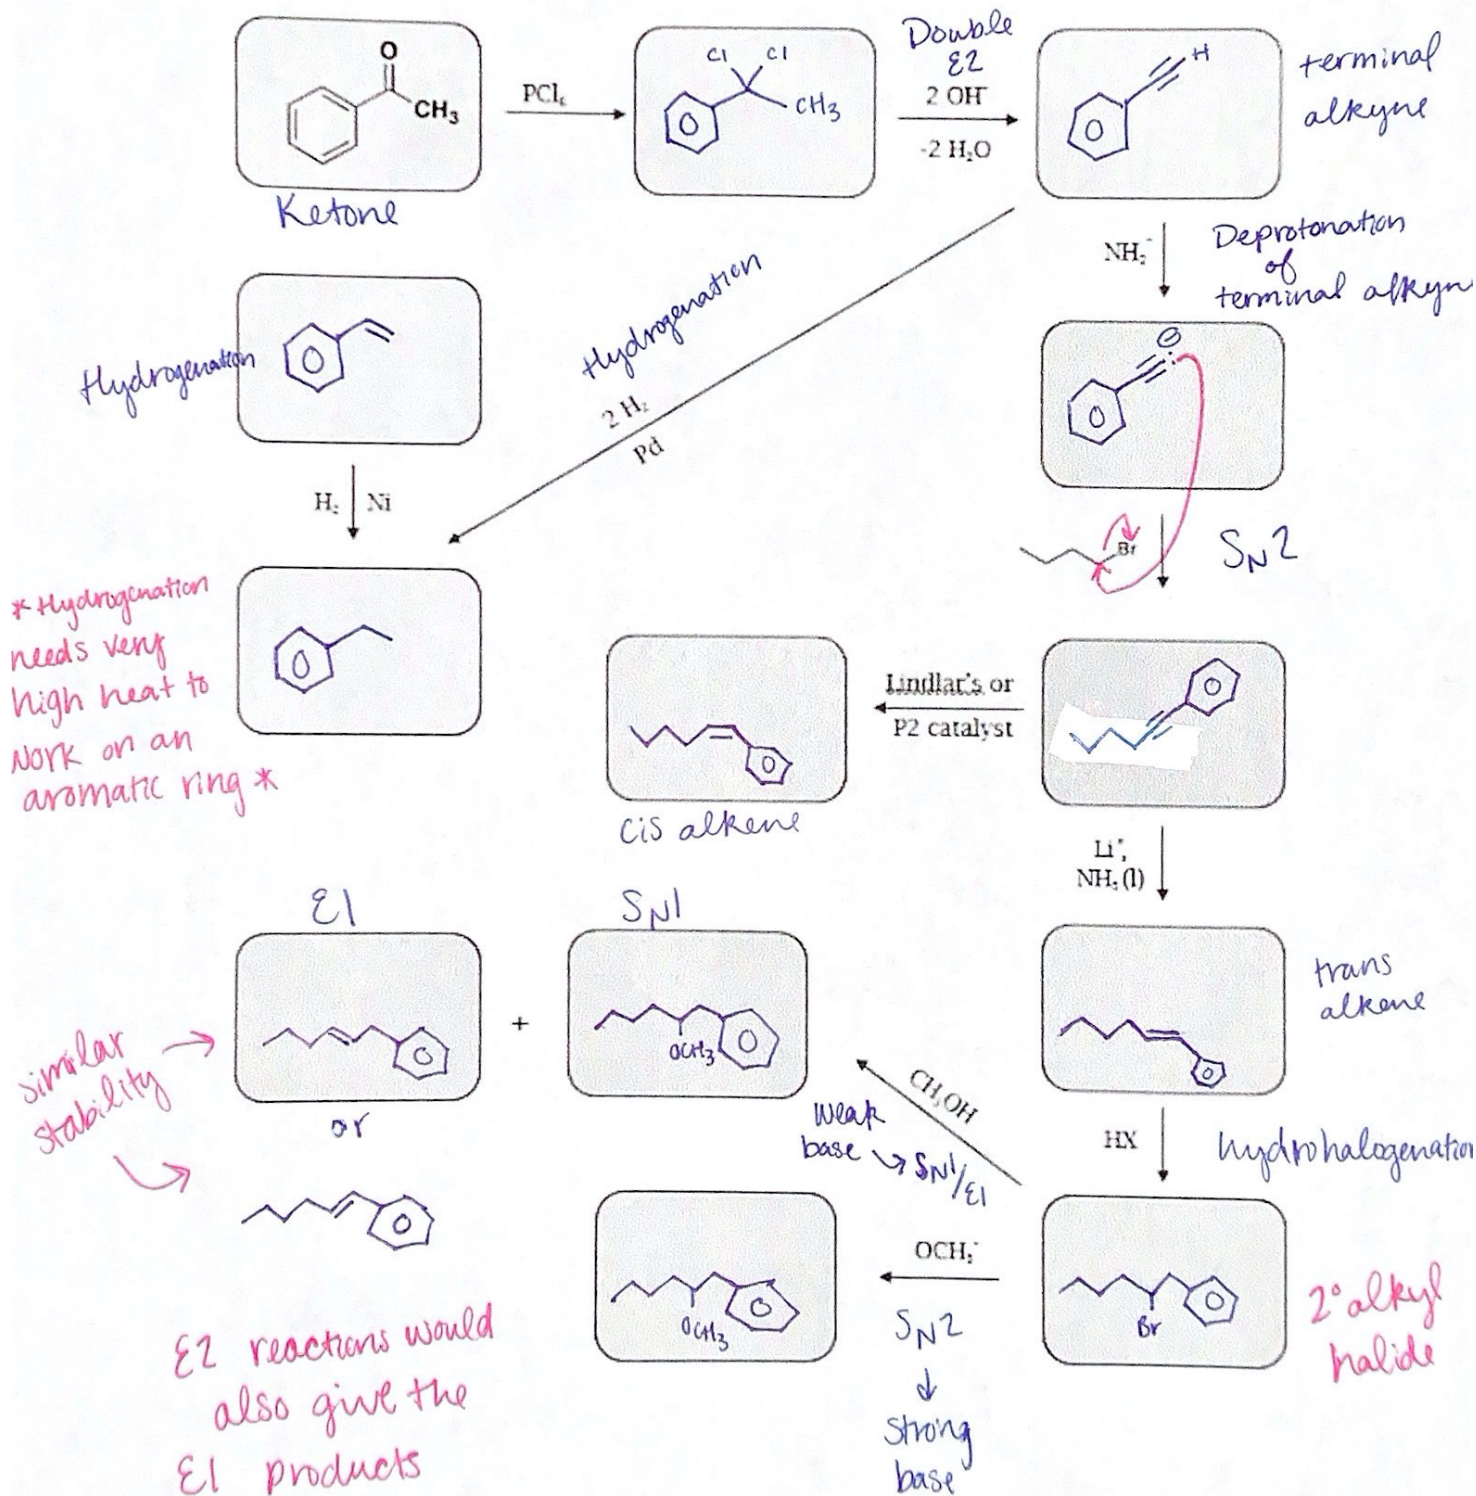 O
CH₃
Ketone
PCl₅
Cl Cl
CH₃
Double
E2
2 OH⁻
-2 H₂O
H
terminal
alkyne
NH₂⁻
Deprotonation
of
terminal alkyne
Hydrogenation
Hydrogenation
2 H₂
Pd
H₂ Ni
Br
SN2
*Hydrogenation
needs very
high heat to
work on an
aromatic ring*
Lindlar's or
P2 catalyst
cis alkene
Li°,
NH₃ (l)
trans
alkene
E1
SN1
+
OCH₃
similar
stability
or
CH₃OH
Weak
base → SN1/E1
HX
hydrohalogenation
OCH₃⁻
SN2
↓
Strong
base
OCH₃
Br
2° alkyl
halide
E2 reactions would
also give the
E1 products